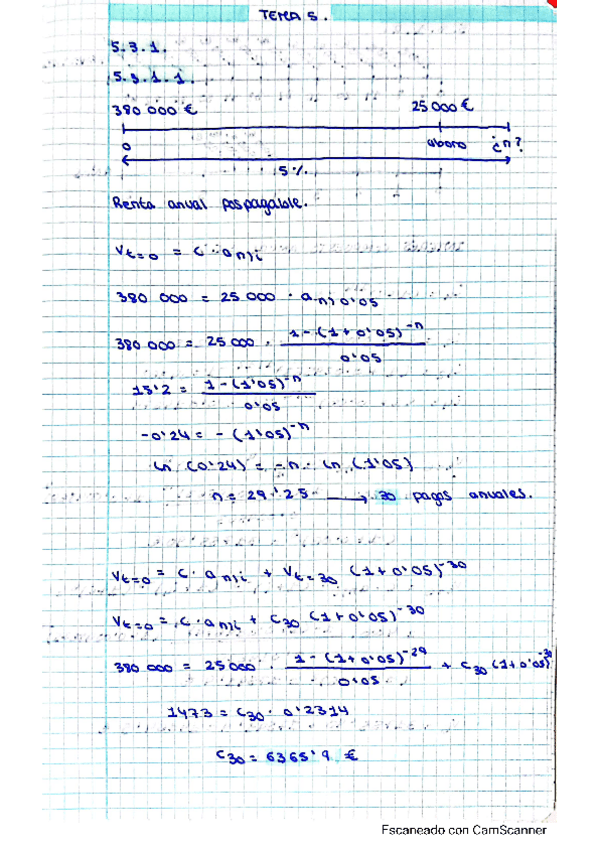 TEMA 5.
5.3.1.
5.3.1.1.
380 000 € 25 000 €
0 abono ¿n?
5%
Renta anual pospagable.
Vt=0 = C · a n⌉i
380 000 = 25 000 · a n⌉0'05
380 000 = 25 000 · 1-(1+0'05)^-n / 0'05
15'2 = 1-(1'05)^-n / 0'05
-0'24 = -(1'05)^-n
ln (0'24) = -n · ln (1'05)
n = 29'25 → 30 pagos anuales.
Vt=0 = C · a n⌉i + Vt=30 (1+0'05)^-30
Vt=0 = C · a n⌉i + C30 (1+0'05)^-30
380 000 = 25000 · 1-(1+0'05)^-29 / 0'05 + C30 (1+0'05)^-30
1473 = C30 · 0'2314
C30 = 6365'9 €
Escaneado con CamScanner